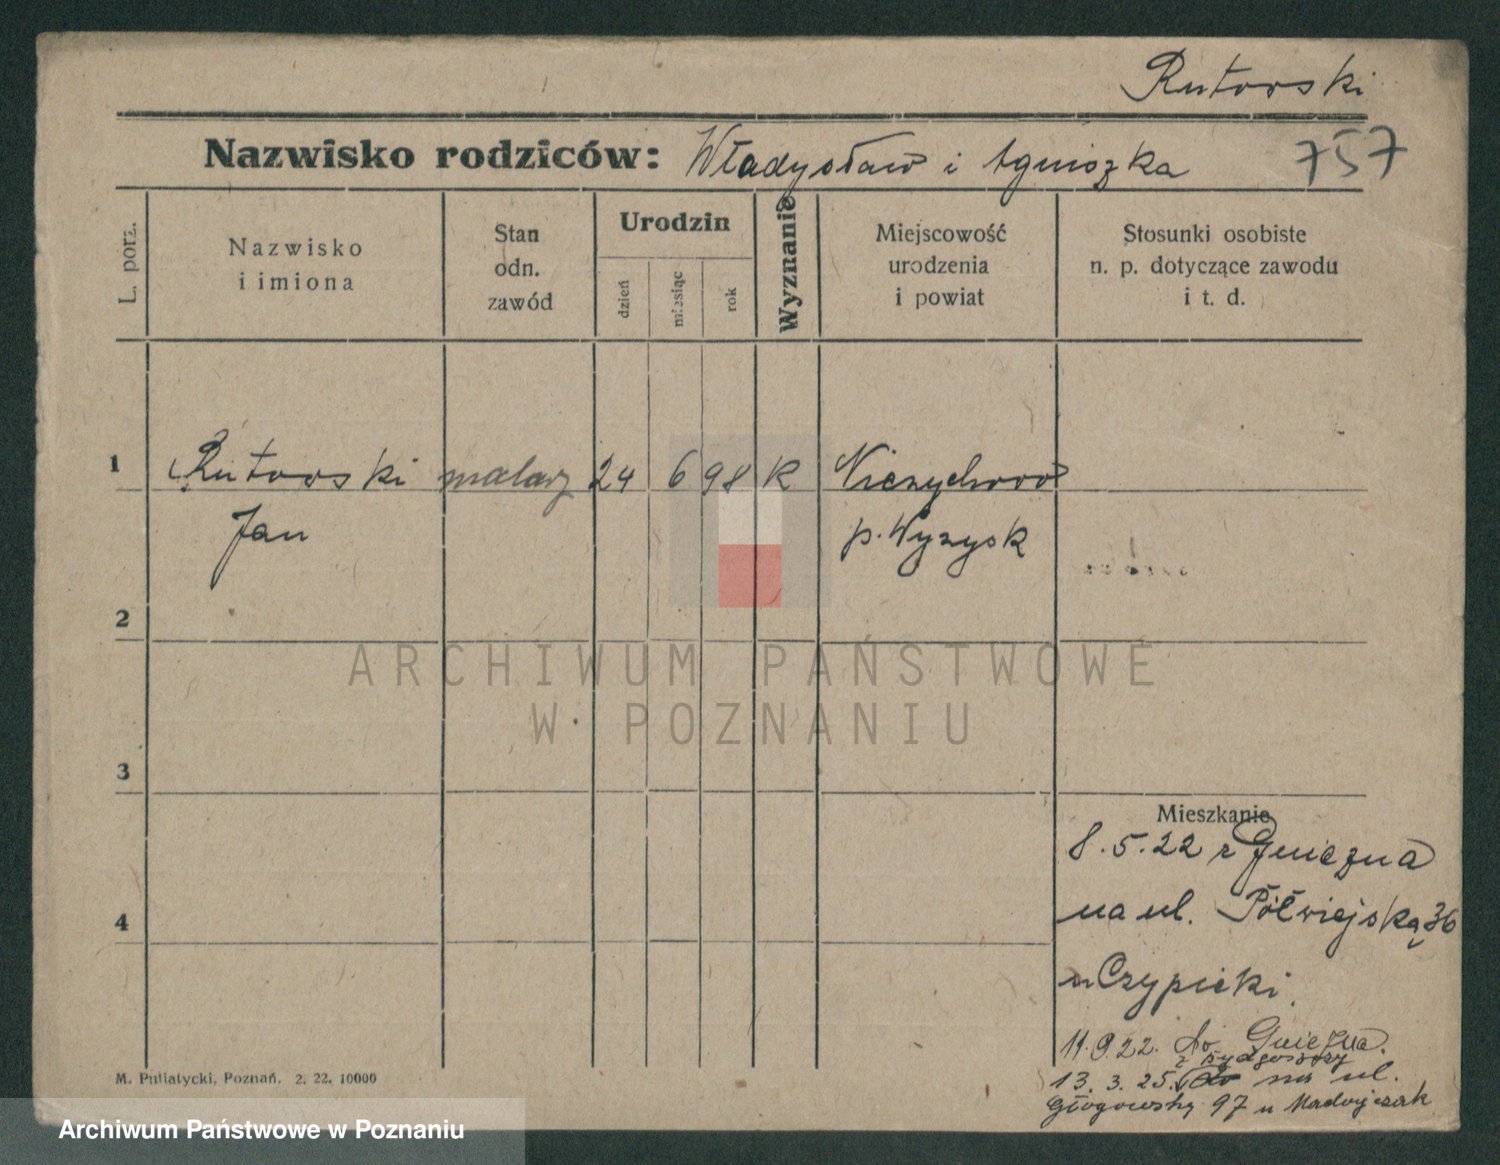 Rutowski
Nazwisko rodziców: Władysław i Agniszka 757
L. porz.
Nazwisko
i imiona
Stan
odn.
zawód
Urodzin
dzień
miesiąc
rok
Wyznanie
Miejscowość
urodzenia
i powiat
Stosunki osobiste
n. p. dotyczące zawodu
i t. d.
1 Rutowski malarz 24 6 98 K Niezychowo
Jan p. Wyzysk
2
ARCHIWUM PAŃSTWOWE
W POZNANIU
3
Mieszkanie
8.5.22 z Gniezna
4 na ul. Półwiejską 36
u Czypicki
11.9.22. do Gniezna.
z Bydgoszczy
13.3.25. na ul.
Głogowską 97 u
M. Putiatycki, Poznań. 2. 22. 10000
Archiwum Państwowe w Poznaniu